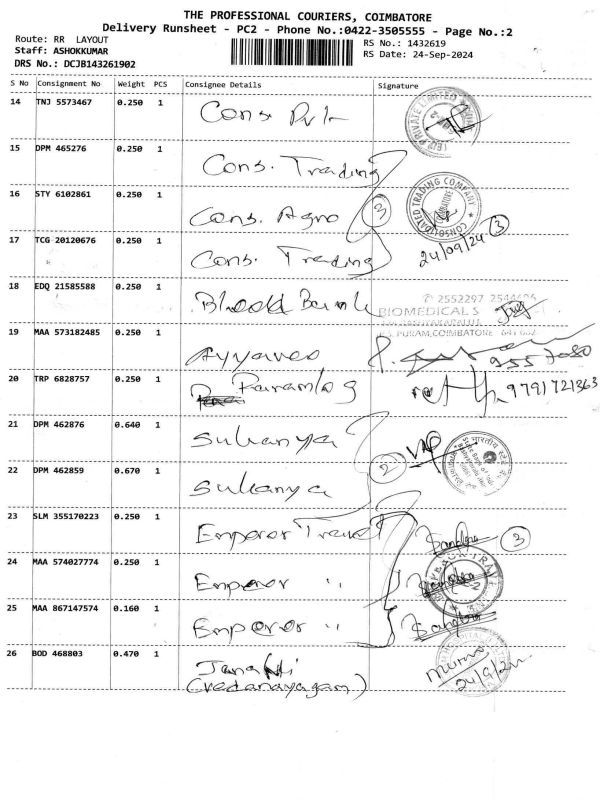 THE PROFESSIONAL COURIERS, COIMBATORE
Delivery Runsheet - PC2 - Phone No.:0422-3505555 - Page No.:2
Route: RR LAYOUT
Staff: ASHOKKUMAR
DRS No.: DCJB143261902
RS No.: 1432619
RS Date: 24-Sep-2024
S No Consignment No Weight PCS Consignee Details Signature
14 TNJ 5573467 0.250 1 Cons. Pvt
15 DPM 465276 0.250 1 Cons. Trading
16 STY 6102861 0.250 1 Cons. Agro 3
CONSOLIDATED TRADING COMPANY
COIMBATORE
17 TCG 20120676 0.250 1 Cons. Trading 24/09/24 3
18 EDQ 21585588 0.250 1 Blood Bank
2552297
BIOMEDICALS
PURAM, COIMBATORE
19 MAA 573182485 0.250 1 Ayyavoo
20 TRP 6828757 0.250 1 Paramlog 9791721363
21 DPM 462876 0.640 1 Sukanya
22 DPM 462859 0.670 1 Sukanya 2
23 SLM 355170223 0.250 1 Emperor Travel 3
24 MAA 574027774 0.250 1 Emperor "
25 MAA 867147574 0.160 1 Emperor "
26 BOD 468803 0.470 1 Janaki
(vedanayagam) 24/9/24